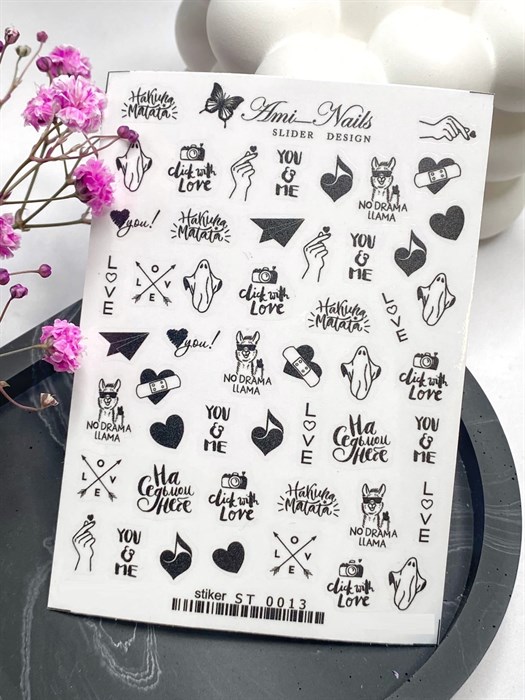 Hakuna
Matata
Ami_Nails
SLIDER DESIGN
click with
Love
YOU
&
ME
NO DRAMA
LLAMA
you!
Hakuna
Matata
YOU
&
ME
L
♡
V
E
L O V E
click with
Love
Hakuna
Matata
L
♡
V
E
you!
NO DRAMA
LLAMA
click with
Love
NO DRAMA
LLAMA
YOU
&
ME
L
♡
V
E
На
Седьмом
Небе
YOU
&
ME
L O V E
На
Седьмом
Небе
click with
Love
Hakuna
Matata
NO DRAMA
LLAMA
L
♡
V
E
YOU
&
ME
L O V E
click with
Love
stiker ST 0013